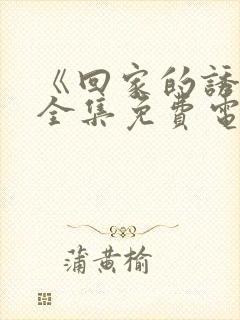 《回家的誘
全集免費電
蒲黄榆